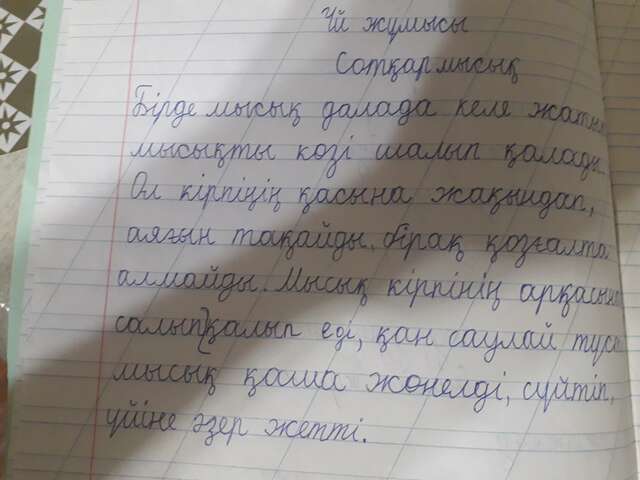 Үй жұмысы
Сотқармысық
Бірде мысық далада келе жатып
мысықты козі шалып қалады.
Ол кірпіңің қасына жақындап,
аяғын тақайды, бірақ қозғалта
алмайды. Мысық кірпінің арқасына
салып қалып еді, қан саулай
мысық қаша жөнелді, сүйтіп,
үйіне әзер жетті.